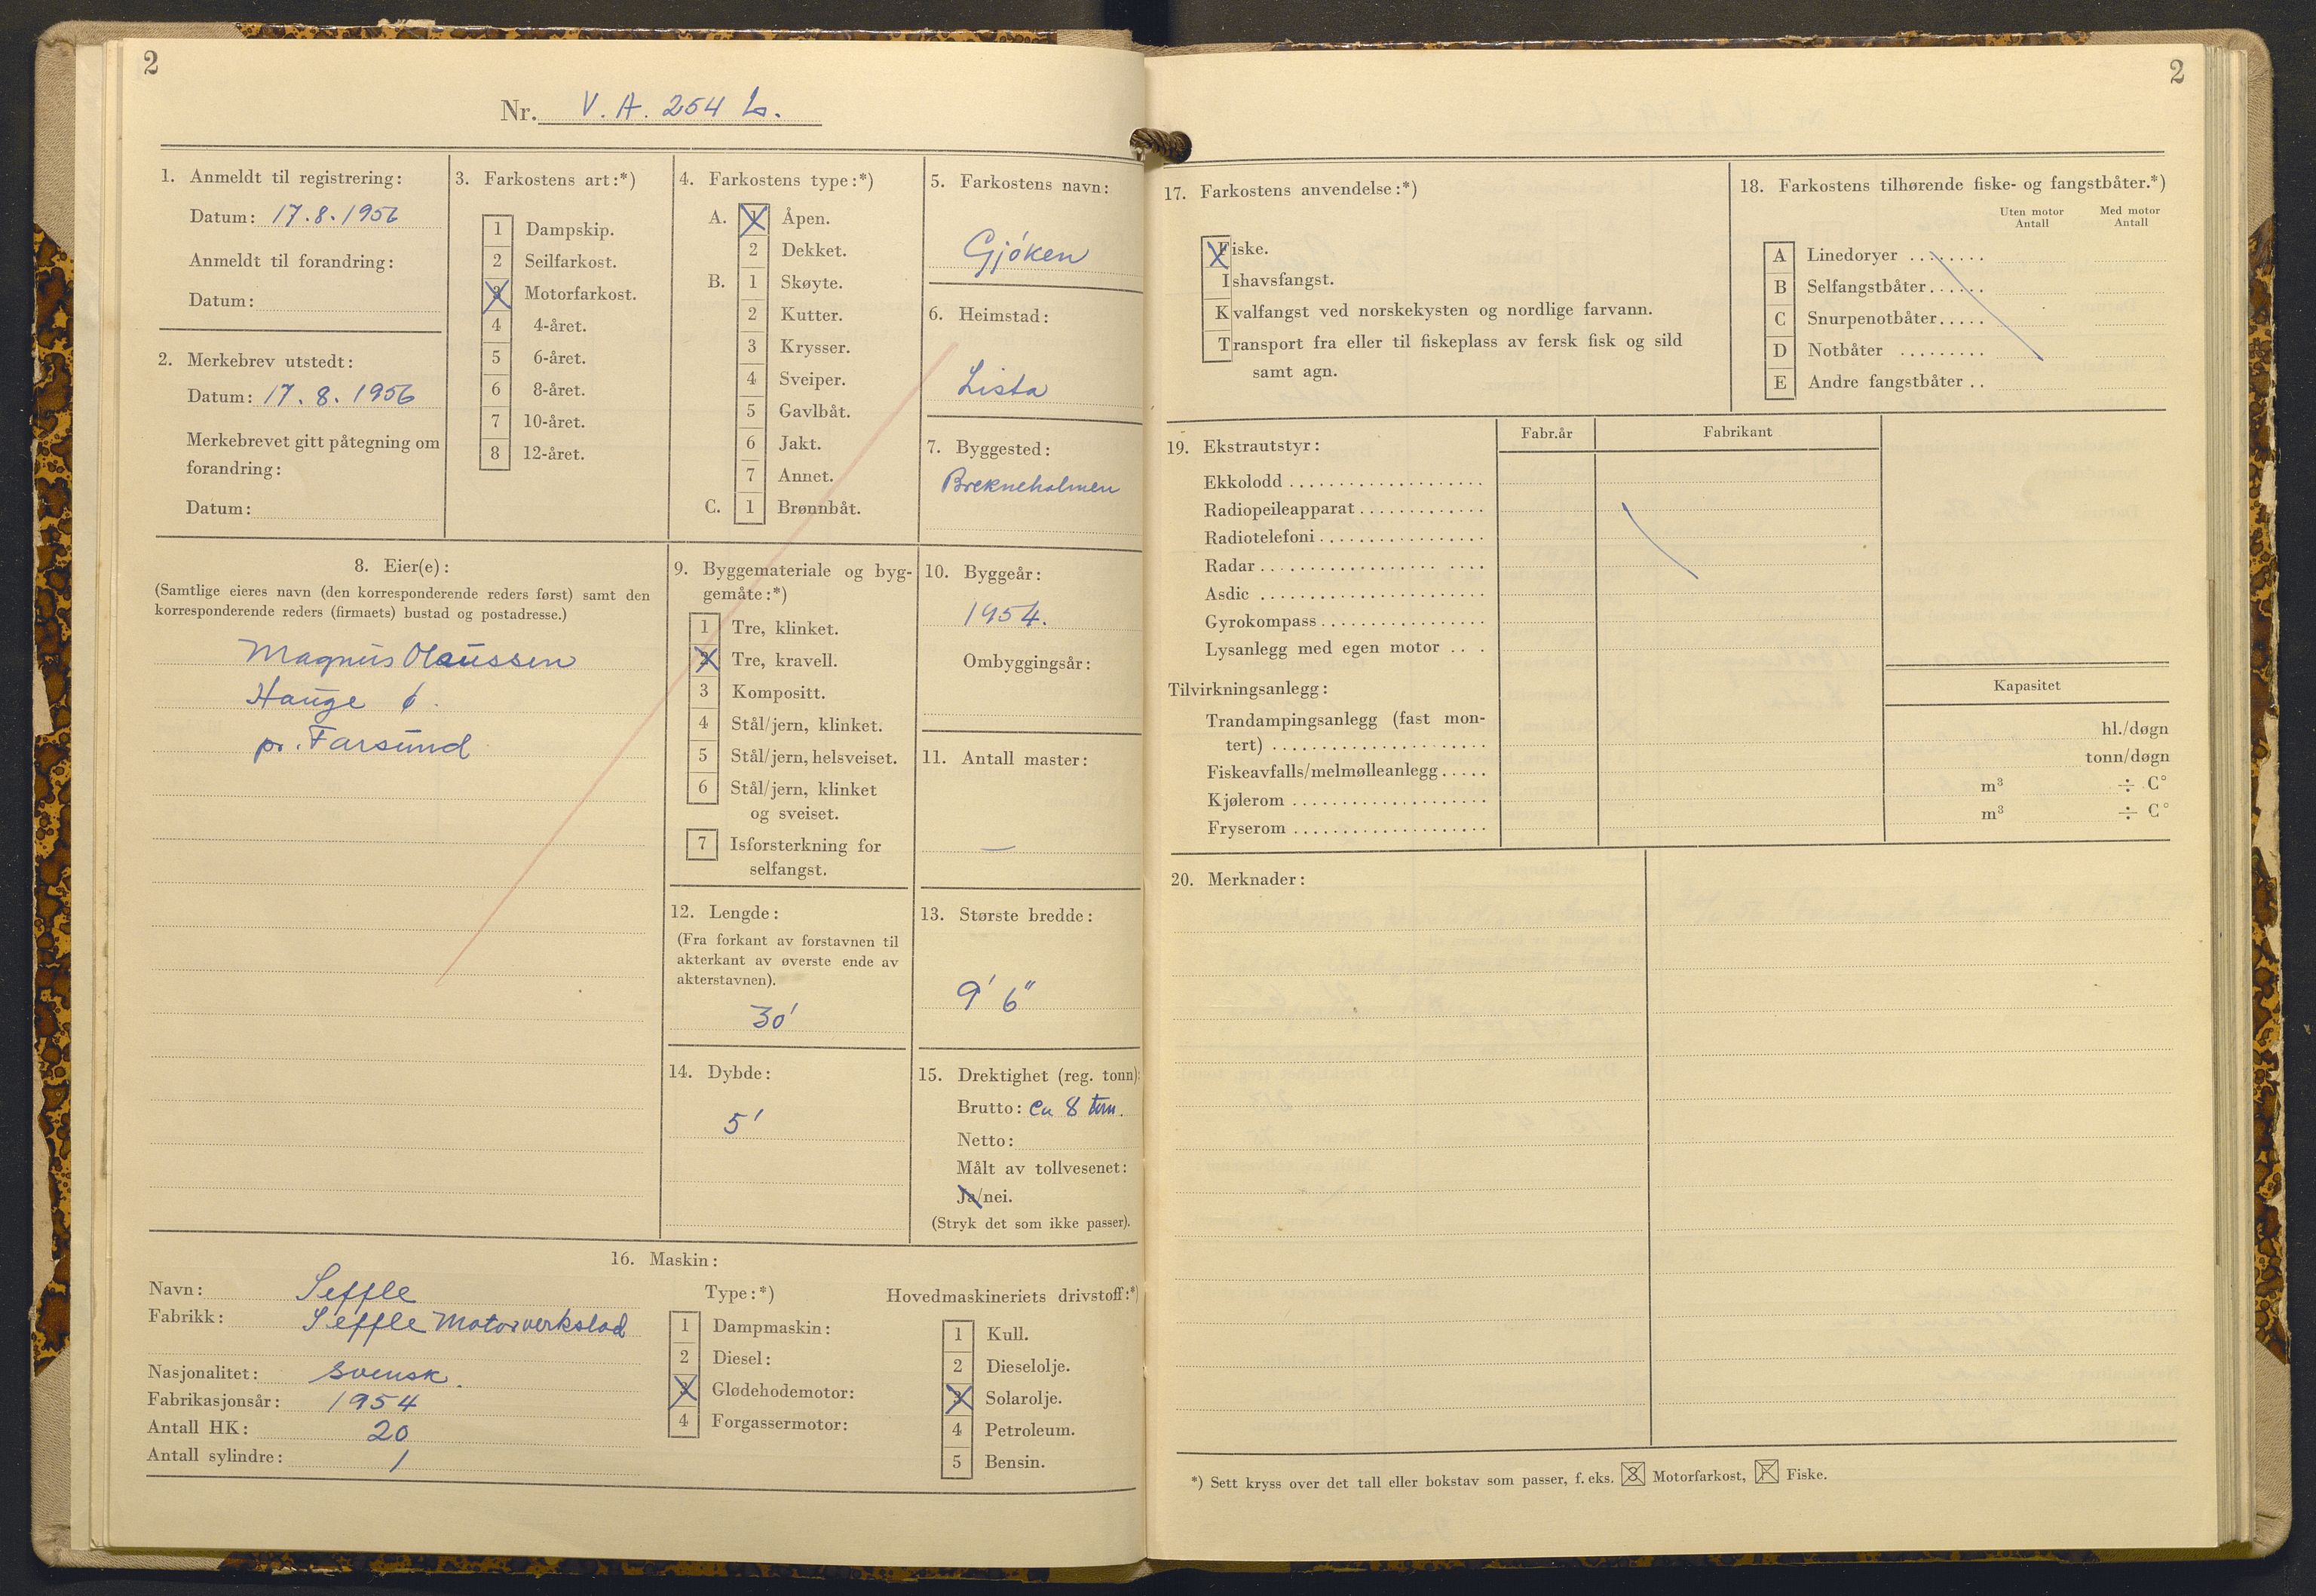 2
Nr. V. A. 254 L.
1. Anmeldt til registrering:
Datum: 17.8.1956
Anmeldt til forandring:
Datum:
2. Merkebrev utstedt:
Datum: 17. 8. 1956
Merkebrevet gitt påtegning om
forandring:
Datum:
3. Farkostens art:*)
1 Dampskip.
2 Seilfarkost.
3 Motorfarkost.
4 4-året.
5 6-året.
6 8-året.
7 10-året.
8 12-året.
4. Farkostens type:*)
A. 1 Åpen.
2 Dekket.
B. 1 Skøyte.
2 Kutter.
3 Krysser.
4 Sveiper.
5 Gavlbåt.
6 Jakt.
7 Annet.
C. 1 Brønnbåt.
5. Farkostens navn:
Gjöken
6. Heimstad:
Lista
7. Byggested:
Brekneholmen
8. Eier(e):
(Samtlige eieres navn (den korresponderende reders først) samt den
korresponderende reders (firmaets) bustad og postadresse.)
Magnus Olaussen
Hauge
pr. Farsund
9. Byggemateriale og byg-
gemåte:*)
1 Tre, klinket.
2 Tre, kravell.
3 Kompositt.
4 Stål/jern, klinket.
5 Stål/jern, helsveiset.
6 Stål/jern, klinket
og sveiset.
7 Isforsterkning for
selfangst.
10. Byggeår:
1954.
Ombyggingsår:
11. Antall master:
—
12. Lengde:
(Fra forkant av forstavnen til
akterkant av øverste ende av
akterstavnen).
30'
13. Største bredde:
9' 6"
14. Dybde:
5'
15. Drektighet (reg. tonn):
Brutto: ca 8 tonn.
Netto:
Målt av tollvesenet:
Ja/nei.
(Stryk det som ikke passer).
16. Maskin:
Navn: Seffle
Fabrikk: Seffle Motorverkstad
Nasjonalitet: svensk.
Fabrikasjonsår: 1954
Antall HK: 20
Antall sylindre: 1
Type:*)
1 Dampmaskin:
2 Diesel:
3 Glødehodemotor:
4 Forgassermotor:
Hovedmaskineriets drivstoff:*)
1 Kull.
2 Dieselolje.
3 Solarolje.
4 Petroleum.
5 Bensin.
2
17. Farkostens anvendelse:*)
Fiske.
Ishavsfangst.
Kvalfangst ved norskekysten og nordlige farvann.
Transport fra eller til fiskeplass av fersk fisk og sild
samt agn.
18. Farkostens tilhørende fiske- og fangstbåter.*)
Uten motor Antall
Med motor Antall
A Linedoryer ........
B Selfangstbåter......
C Snurpenotbåter.....
D Notbåter .........
E Andre fangstbåter ..
19. Ekstrautstyr:
Fabr.år
Fabrikant
Ekkolodd
Radiopeileapparat
Radiotelefoni
Radar
Asdic
Gyrokompass
Lysanlegg med egen motor ...
Tilvirkningsanlegg:
Kapasitet
Trandampingsanlegg (fast mon-
tert)
hl./døgn
Fiskeavfalls/melmølleanlegg.....
tonn/døgn
Kjølerom
m³ ÷ C°
Fryserom
m³ ÷ C°
20. Merknader:
*) Sett kryss over det tall eller bokstav som passer, f. eks. 3 Motorfarkost, F Fiske.